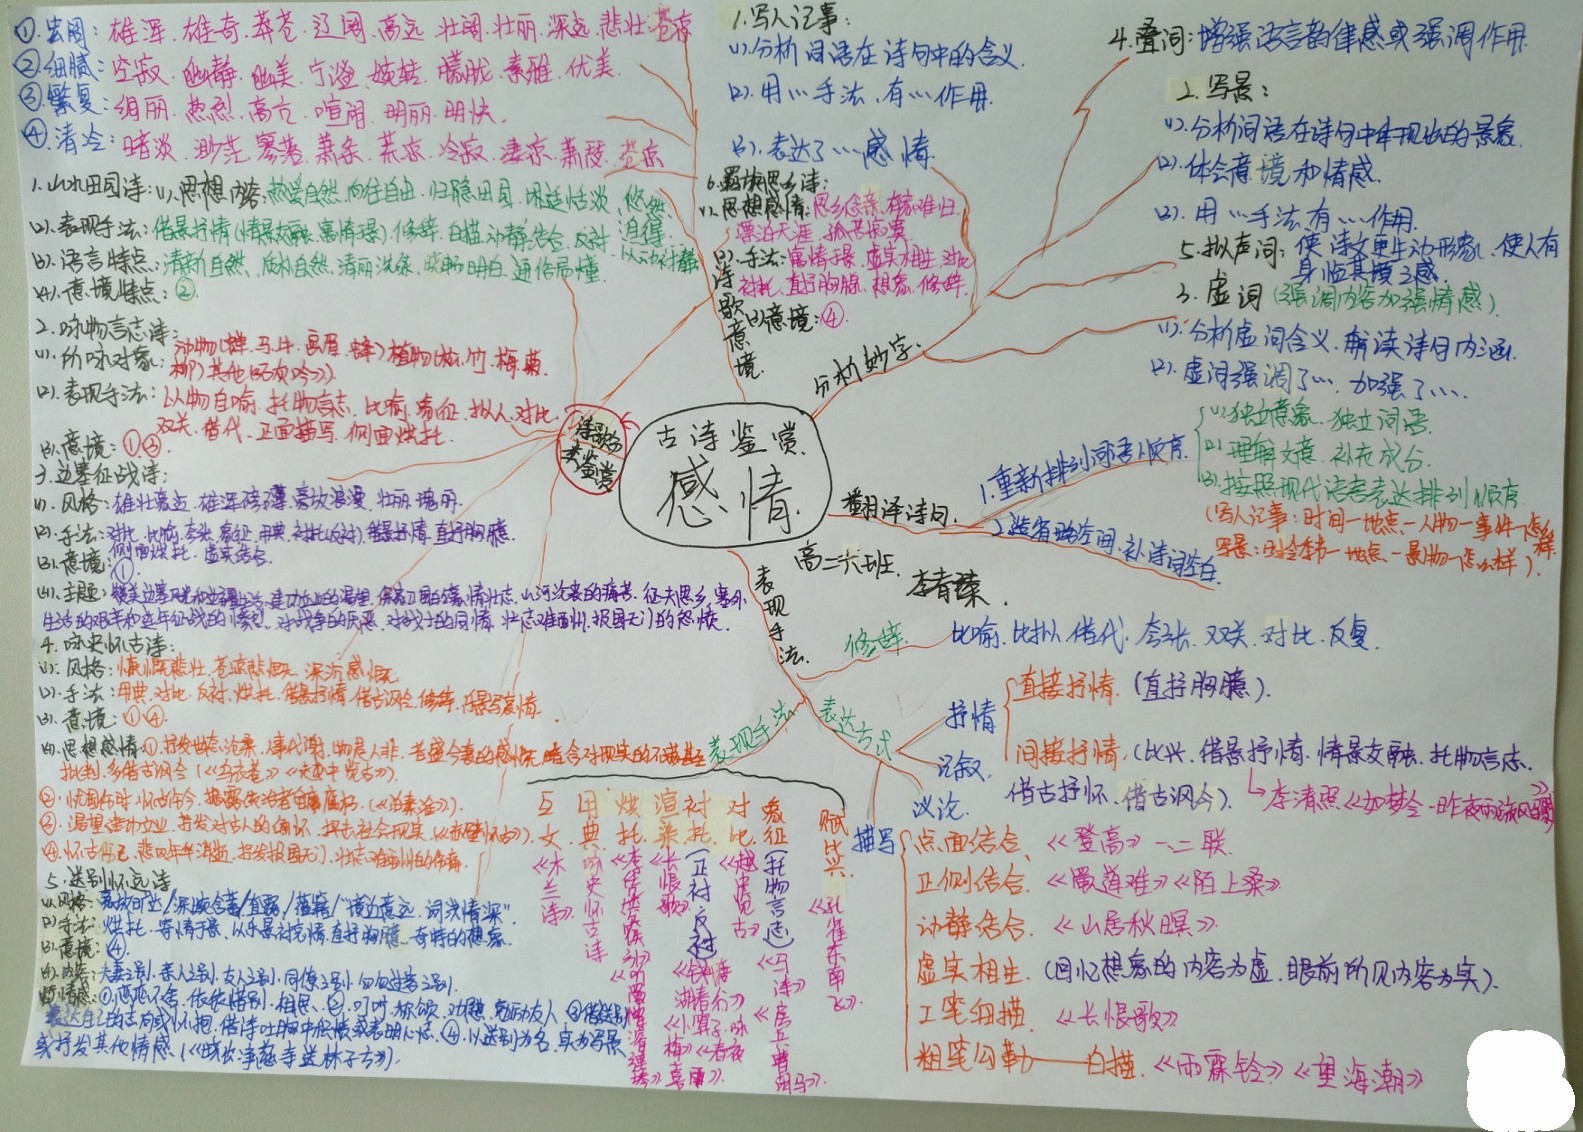 ①.宏阔：雄浑.雄奇.莽苍.辽阔.高远.壮阔.壮丽.深远.悲壮.苍凉
②.细腻：空寂.幽静.幽美.宁谧.婉转.朦胧.素雅.优美.
③.繁复：绚丽.热烈.高亢.喧闹.明丽.明快.
④.清冷：暗淡.渺茫.寥落.萧条.荒凉.冷寂.凄凉.萧瑟.苍凉
诗歌意境.
1.山水田园诗：(1).思想内容：热爱自然.向往自由.归隐田园.闲适恬淡、悠然自得.
(2).表现手法：借景抒情(情景交融.寓情于景).修辞.白描.动静结合.反衬.以动衬静
(3).语言特点：清新自然.质朴自然.清丽洗练.晓畅明白.通俗易懂.
(4).意境特点：②.
2.咏物言志诗：
(1).所咏对象：动物(蝉.马.牛.画眉.蜂)植物(松.竹.梅.菊.柳)其他(石灰吟).
(2).表现手法：以物自喻.托物言志.比喻.象征.拟人.对比.双关.借代.正面描写.侧面烘托.
(3).意境：①③
3.边塞征战诗：
(1).风格：雄壮豪迈.雄浑磅礴.豪放浪漫.壮丽.瑰丽.
(2).手法：对比.比喻.夸张.象征.用典.衬托(反衬).借景抒情.直抒胸臆.侧面烘托.虚实结合.
(3).意境：①
(4).主题：
生活的艰辛和连年征战的惨烈.对战争的厌恶.对战士的同情.壮志难酬.报国无门的怨愤.
4.咏史怀古诗：
(1).风格：慷慨悲壮.苍凉悲慨.深沉感慨
(2).手法：用典.对比.反衬.烘托.借景抒情.借古讽今.修辞.乐景写哀情.
(3).意境：①④.
(4).思想感情①.抒发世态沧桑.人事代谢.物是人非.昔盛今衰的感慨.暗含对现实的不满甚至批判.多借古讽今(《乌衣巷》《越中览古》).
②.忧国伤时.怀古伤今.揭露统治者的昏庸腐朽.(《泊秦淮》).
③.渴望建功立业.抒发对古人的缅怀.抨击社会现实.(《赤壁怀古》).
④.怀古伤己.悲叹年华消逝.抒发报国无门.壮志难酬的伤痛.
5.送别怀远诗
(1).风格：豪放旷达/深婉含蓄/直露/蕴藉/“境近意远.词浅情深”.
(2).手法：烘托.寄情于景.以乐景衬哀情.直抒胸臆.奇特的想象.
(3).意境：④.
(4).内容：夫妻之别.亲人之别.友人之别.同僚之别.匆匆过客之别.
(5).情感：①.恋恋不舍.依依惜别.相思.②.叮咛.祝颂.劝慰.勉励友人.③借送别
表达自己的志向或怀抱.借诗吐胸中积愤或表明心志.④.以送别为名.实为写景
或抒发其他情感.(《晓出净慈寺送林子方》).
诗歌分类鉴赏
1.写人记事：
(1).分析词语在诗句中的含义.
(2).用…手法、有…作用.
(3).表达了…感情.
6.羁旅思乡诗：
(1).思想感情：思乡念亲.有家难归.漂泊天涯.孤苦寂寞.
(2).手法：寓情于景.虚实相生.对比.衬托.直抒胸臆.想象.修辞.
(3)意境：④.
古诗鉴赏.
感情.
高二六班.
分析妙字.
4.叠词：增强语言韵律感或强调作用.
2.写景：
(1).分析词语在诗句中体现出的景象.
(2).体会意境和情感.
(3).用…手法.有…作用.
5.拟声词：使诗文更生动形象、使人有身临其境之感.
3.虚词(强调内容加强情感)
(1).分析虚词含义.解读诗句内涵.
(2).虚词强调了…加强了….
翻译诗句.
1.重新排列词语顺序.
(1).独立意象.独立词语.
(2).理解文意.补充成分.
(3).按照现代语言表达排列顺序
(写人记事：时间—地点—人物—事件—怎么样
写景：时令季节—地点—景物—怎么样).
2.遵省略空间.补诗词空白.
表现手法.
修辞
比喻.比拟.借代.夸张.双关.对比.反复.
表达方式
抒情
直接抒情.(直抒胸臆).
间接抒情.(比兴.借景抒情.情景交融.托物言志.
借古抒怀.借古讽今).
李清照《如梦令·昨夜雨疏风骤》
记叙.
议论.
描写
点面结合.《登高》一、二联.
正侧结合.《蜀道难》《陌上桑》
动静结合.《山居秋暝》.
虚实相生.(回忆想象的内容为虚.眼前所见内容为实).
工笔细描.《长恨歌》
粗笔勾勒——白描.《雨霖铃》《望海潮》
表现手法
互文《木兰诗》.
用典 咏史怀古诗
烘托
渲染《长恨歌》.
衬托(正衬.反衬)
对比《越中览古》
象征(托物言志)《马诗》《房兵曹胡马》.
赋比兴.《孔雀东南飞》.